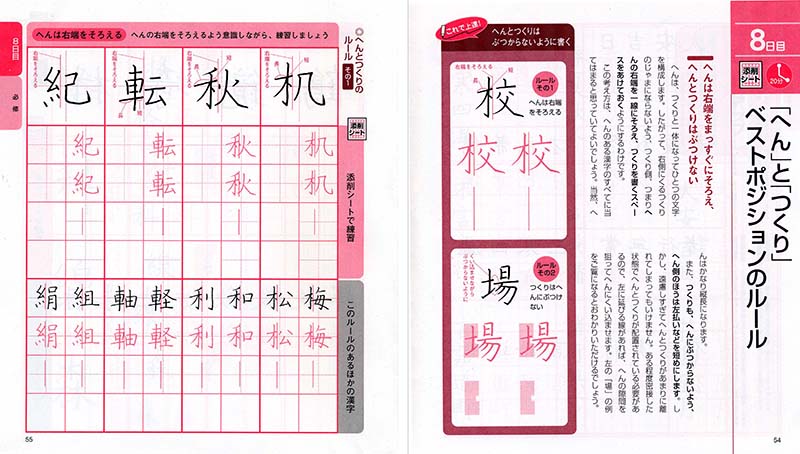 8日目
20分
添削シート
「へん」と「つくり」
ベストポジションのルール
へんは右端をまっすぐにそろえ、
へんとつくりはぶつけない
へんは、つくりと一体になってひとつの文字
を構成します。したがって、右側にくるつくり
のじゃまにならないよう、つくり側、つまりへ
んの右端を一線にそろえ、つくりを書くスペー
スをあけておくようにするわけです。
この考え方は、へんのある漢字のすべてに当
てはまると思っていてよいでしょう。当然、へ
んはかなり縦長になります。
また、つくりも、へんにぶつからないよう、
へん側のほうは左払いなどを短めにします。し
かし、遠慮しすぎてへんとつくりがあまりに離
れてしまってもいけません。ある程度密接した
状態でへんとつくりが配置されている必要があ
るので、左に延びる線があれば、へんの隙間を
狙ってへんにくい込ませます。左の「場」の例
をご覧になるとおわかりいただけるでしょう。
これで上達!
へんとつくりは
ぶつからないように書く
ルール
その1
へんは右端
をそろえる
右端をそろえる
校
校 校
ルール
その2
つくりはへ
んにぶつけ
ない
くい込ませながら
ぶつからないように
場
場 場
54
8日目
必修
◎へんとつくりの
ルール その一
へんは右端をそろえる
へんの右端をそろえるよう意識しながら、練習しましょう
添削シート
添削シートで練習
このルールのあるほかの漢字
机
秋
転
紀
右端をそろえる
右端をそろえる
右端をそろえる
右端をそろえる
短
長
短
長
机 秋 転 紀
机 秋 転 紀
梅 松 和 利 軽 軸 組 絹
梅 松 和 利 軽 軸 組 絹
55